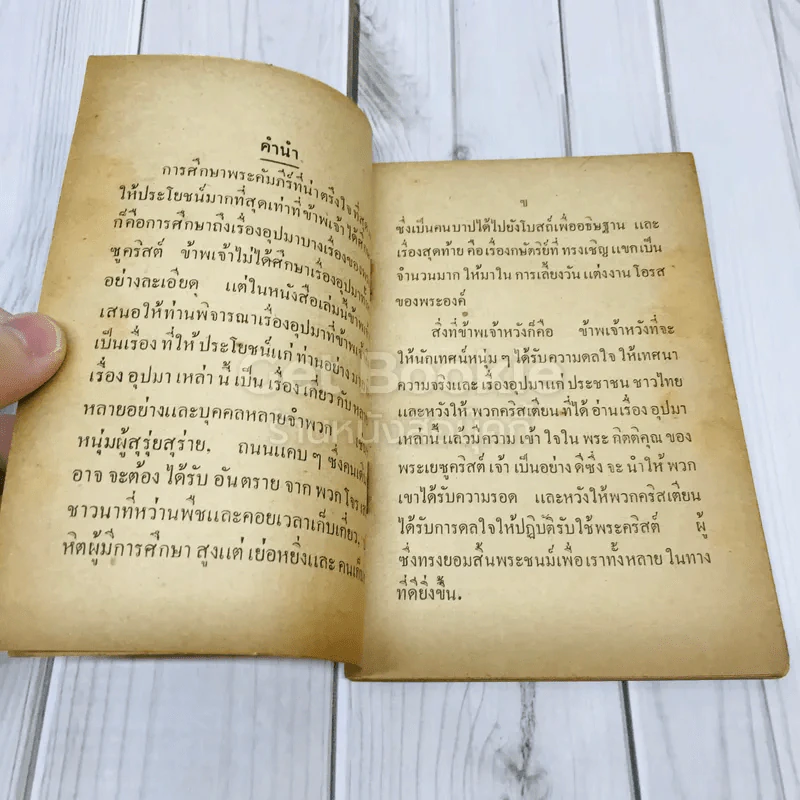 คำนำ
การศึกษาพระคัมภีร์ที่น่าตรึงใจ ที่สุด
ให้ประโยชน์มากที่สุดเท่าที่ข้าพเจ้า ได้ศึก
ก็คือการศึกษาถึงเรื่องอุปมาบางเรื่องของพ
ซูคริสต์ ข้าพเจ้าไม่ได้ศึกษาเรื่องอุปมาทั้
อย่างละเอียด แต่ในหนังสือเล่มนี้ข้าพเ
เสนอให้ท่านพิจารณาเรื่องอุปมาที่ข้าพเจ้าเ
เป็นเรื่อง ที่ให้ ประโยชน์แก่ ท่านอย่าง มา
เรื่อง อุปมา เหล่า นี้ เป็น เรื่อง เกี่ยว กับ หล
หลายอย่างและบุคคลหลายจำพวก
หนุ่มผู้สุรุ่ยสุร่าย. ถนนแคบ ๆ ซึ่งคนเดิน
อาจ จะต้อง ได้รับ อันตราย จาก พวก โจร
ชาวนาที่หว่านพืชและคอยเวลาเก็บเกี่ยว.
หิตผู้มีการศึกษา สูงแต่ เย่อหยิ่งและ คนเก็บ
ข
ซึ่งเป็นคนบาปได้ไปยังโบสถ์เพื่ออธิษฐาน และ
เรื่องสุดท้าย คือเรื่องกษัตริย์ที่ ทรงเชิญ แขกเป็น
จำนวนมาก ให้มาใน การเลี้ยงวัน แต่งงาน โอรส
ของพระองค์
สิ่งที่ข้าพเจ้าหวังก็คือ ข้าพเจ้าหวังที่จะ
ให้นักเทศน์หนุ่ม ๆ ได้รับความดลใจ ให้เทศนา
ความจริงและ เรื่องอุปมาแก่ ประชาชน ชาวไทย
และหวังให้ พวกคริสเตียน ที่ได้ อ่านเรื่อง อุปมา
เหล่านี้ แล้วมีความ เข้า ใจใน พระ กิตติคุณ ของ
พระเยซูคริสต์ เจ้า เป็นอย่าง ดีซึ่ง จะ นำให้ พวก
เขาได้รับความรอด และหวังให้พวกคริสเตียน
ได้รับการดลใจให้ปฏิบัติรับใช้พระคริสต์ ผู้
ซึ่งทรงยอมสิ้นพระชนม์เพื่อเราทั้งหลาย ในทาง
ที่ดียิ่งขึ้น.